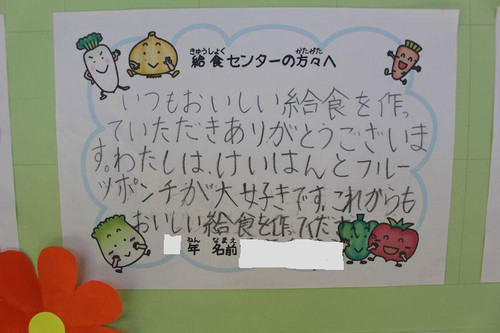 きゅうしょく かたがた
給食センターの方々へ
いつもおいしい給食を作っ
ていただきありがとうございま
す。わたしは、けいはんとフルー
ツポンチが大好きです。これからも
おいしい給食を作ってくださ
ねん なまえ
年 名前